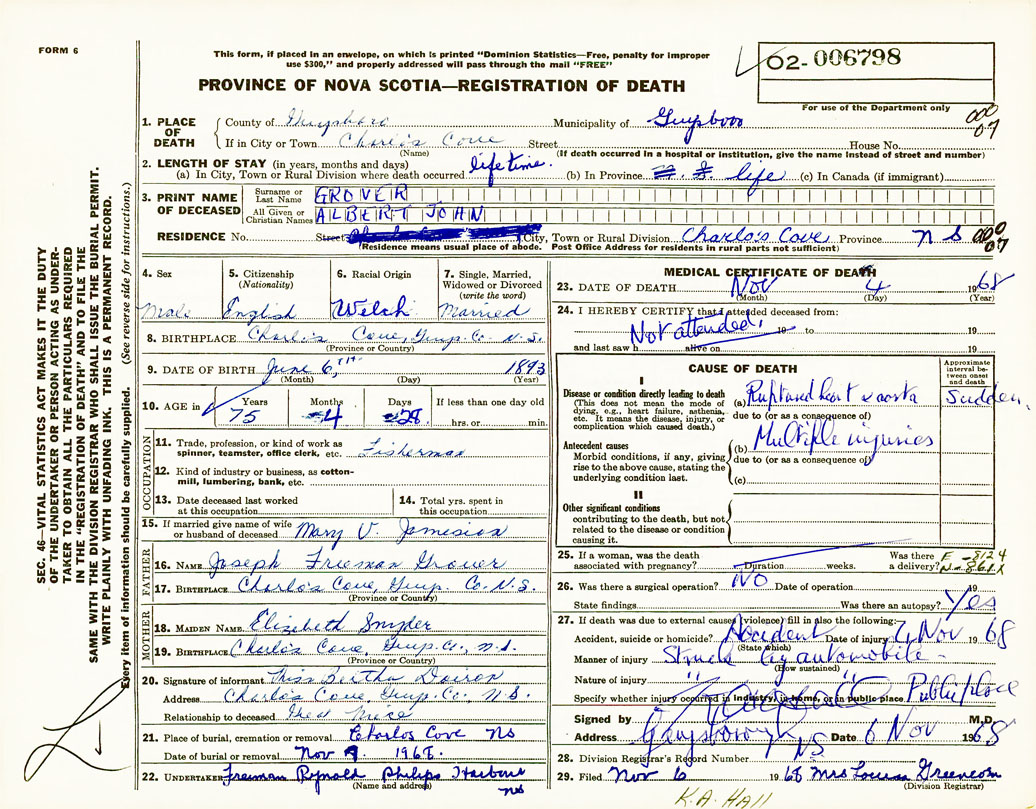 FORM 6
This form, if placed in an envelope, on which is printed "Dominion Statistics—Free, penalty for improper
use $300," and properly addressed will pass through the mail "FREE"
02- 006798
PROVINCE OF NOVA SCOTIA—REGISTRATION OF DEATH
For use of the Department only
000
07
1. PLACE OF DEATH
County of Guysboro Municipality of Guysboro
If in City or Town Charlo's Cove Street House No.
(Name) (If death occurred in a hospital or institution, give the name instead of street and number)
2. LENGTH OF STAY (in years, months and days)
(a) In City, Town or Rural Division where death occurred life time. (b) In Province life (c) In Canada (if immigrant)
3. PRINT NAME OF DECEASED
Surname or Last Name GROVER
All Given or Christian Names ALBERT JOHN
RESIDENCE No. Street City, Town or Rural Division Charlo's Cove Province N S 000
07
(Residence means usual place of abode. Post Office Address for residents in rural parts not sufficient)
4. Sex 5. Citizenship (Nationality) 6. Racial Origin 7. Single, Married, Widowed or Divorced (write the word)
Male English Welch Married
8. BIRTHPLACE Charlo's Cove, Guys. Co. N.S.
(Province or Country)
9. DATE OF BIRTH June 6, 1893
(Month) (Day) (Year)
10. AGE in Years Months Days If less than one day old
75 4 28 hrs. or min.
OCCUPATION
11. Trade, profession, or kind of work as
spinner, teamster, office clerk, etc. Fisherman
12. Kind of industry or business, as cotton-
mill, lumbering, bank, etc.
13. Date deceased last worked
at this occupation
14. Total yrs. spent in
this occupation
15. If married give name of wife
or husband of deceased Mary V. Jamesion
FATHER
16. NAME Joseph Freeman Grover
17. BIRTHPLACE Charlo's Cove, Guys. Co. N.S.
(Province or Country)
MOTHER
18. MAIDEN NAME Elizabeth Snyder
19. BIRTHPLACE Charlo's Cove, Guys. Co., N.S.
(Province or Country)
20. Signature of informant Miss Bertha Doiron
Address Charlo's Cove Guys. Co. N.S.
Relationship to deceased Niece
21. Place of burial, cremation or removal Charlos Cove NS
Date of burial or removal Nov 1968.
22. UNDERTAKER Freeman Rynold Philips Harbour
(Name and address) NS
MEDICAL CERTIFICATE OF DEATH
23. DATE OF DEATH Nov 4 1968
(Month) (Day) (Year)
24. I HEREBY CERTIFY that I attended deceased from:
Not attended. 19 to 19
and last saw h alive on 19
CAUSE OF DEATH
Approximate interval between onset and death
I
Disease or condition directly leading to death
(This does not mean the mode of
dying, e.g., heart failure, asthenia,
etc. It means the disease, injury, or
complication which caused death.)
(a) Ruptured heart & aorta Sudden.
due to (or as a consequence of)
Antecedent causes
Morbid conditions, if any, giving
rise to the above cause, stating the
underlying condition last.
(b) Multiple injuries
due to (or as a consequence of)
(c)
II
Other significant conditions
contributing to the death, but not
related to the disease or condition
causing it.
25. If a woman, was the death
associated with pregnancy? Duration weeks. Was there a delivery?
E-8124
26. Was there a surgical operation? NO Date of operation 19
State findings Was there an autopsy? Yes
27. If death was due to external causes (violence) fill in also the following:
Accident, suicide or homicide? Accident Date of injury Nov 1968
(State which)
Manner of injury Struck by automobile -
(How sustained)
Nature of injury " "
Specify whether injury occurred in industry, in home, or in public place Public place
Signed by M.D.
Address Guysborough NS Date 6 Nov 1968
28. Division Registrar's Record Number
29. Filed Nov 6 1968 Mrs Louisa Greencorn
(Division Registrar)
K. A. Hall
SEC. 46—VITAL STATISTICS ACT MAKES IT THE DUTY
OF THE UNDERTAKER OR PERSON ACTING AS UNDER-
TAKER TO OBTAIN ALL THE PARTICULARS REQUIRED
IN THE "REGISTRATION OF DEATH" AND TO FILE THE
SAME WITH THE DIVISION REGISTRAR WHO SHALL ISSUE THE BURIAL PERMIT.
WRITE PLAINLY WITH UNFADING INK. THIS IS A PERMANENT RECORD.
Every item of information should be carefully supplied. (See reverse side for instructions.)